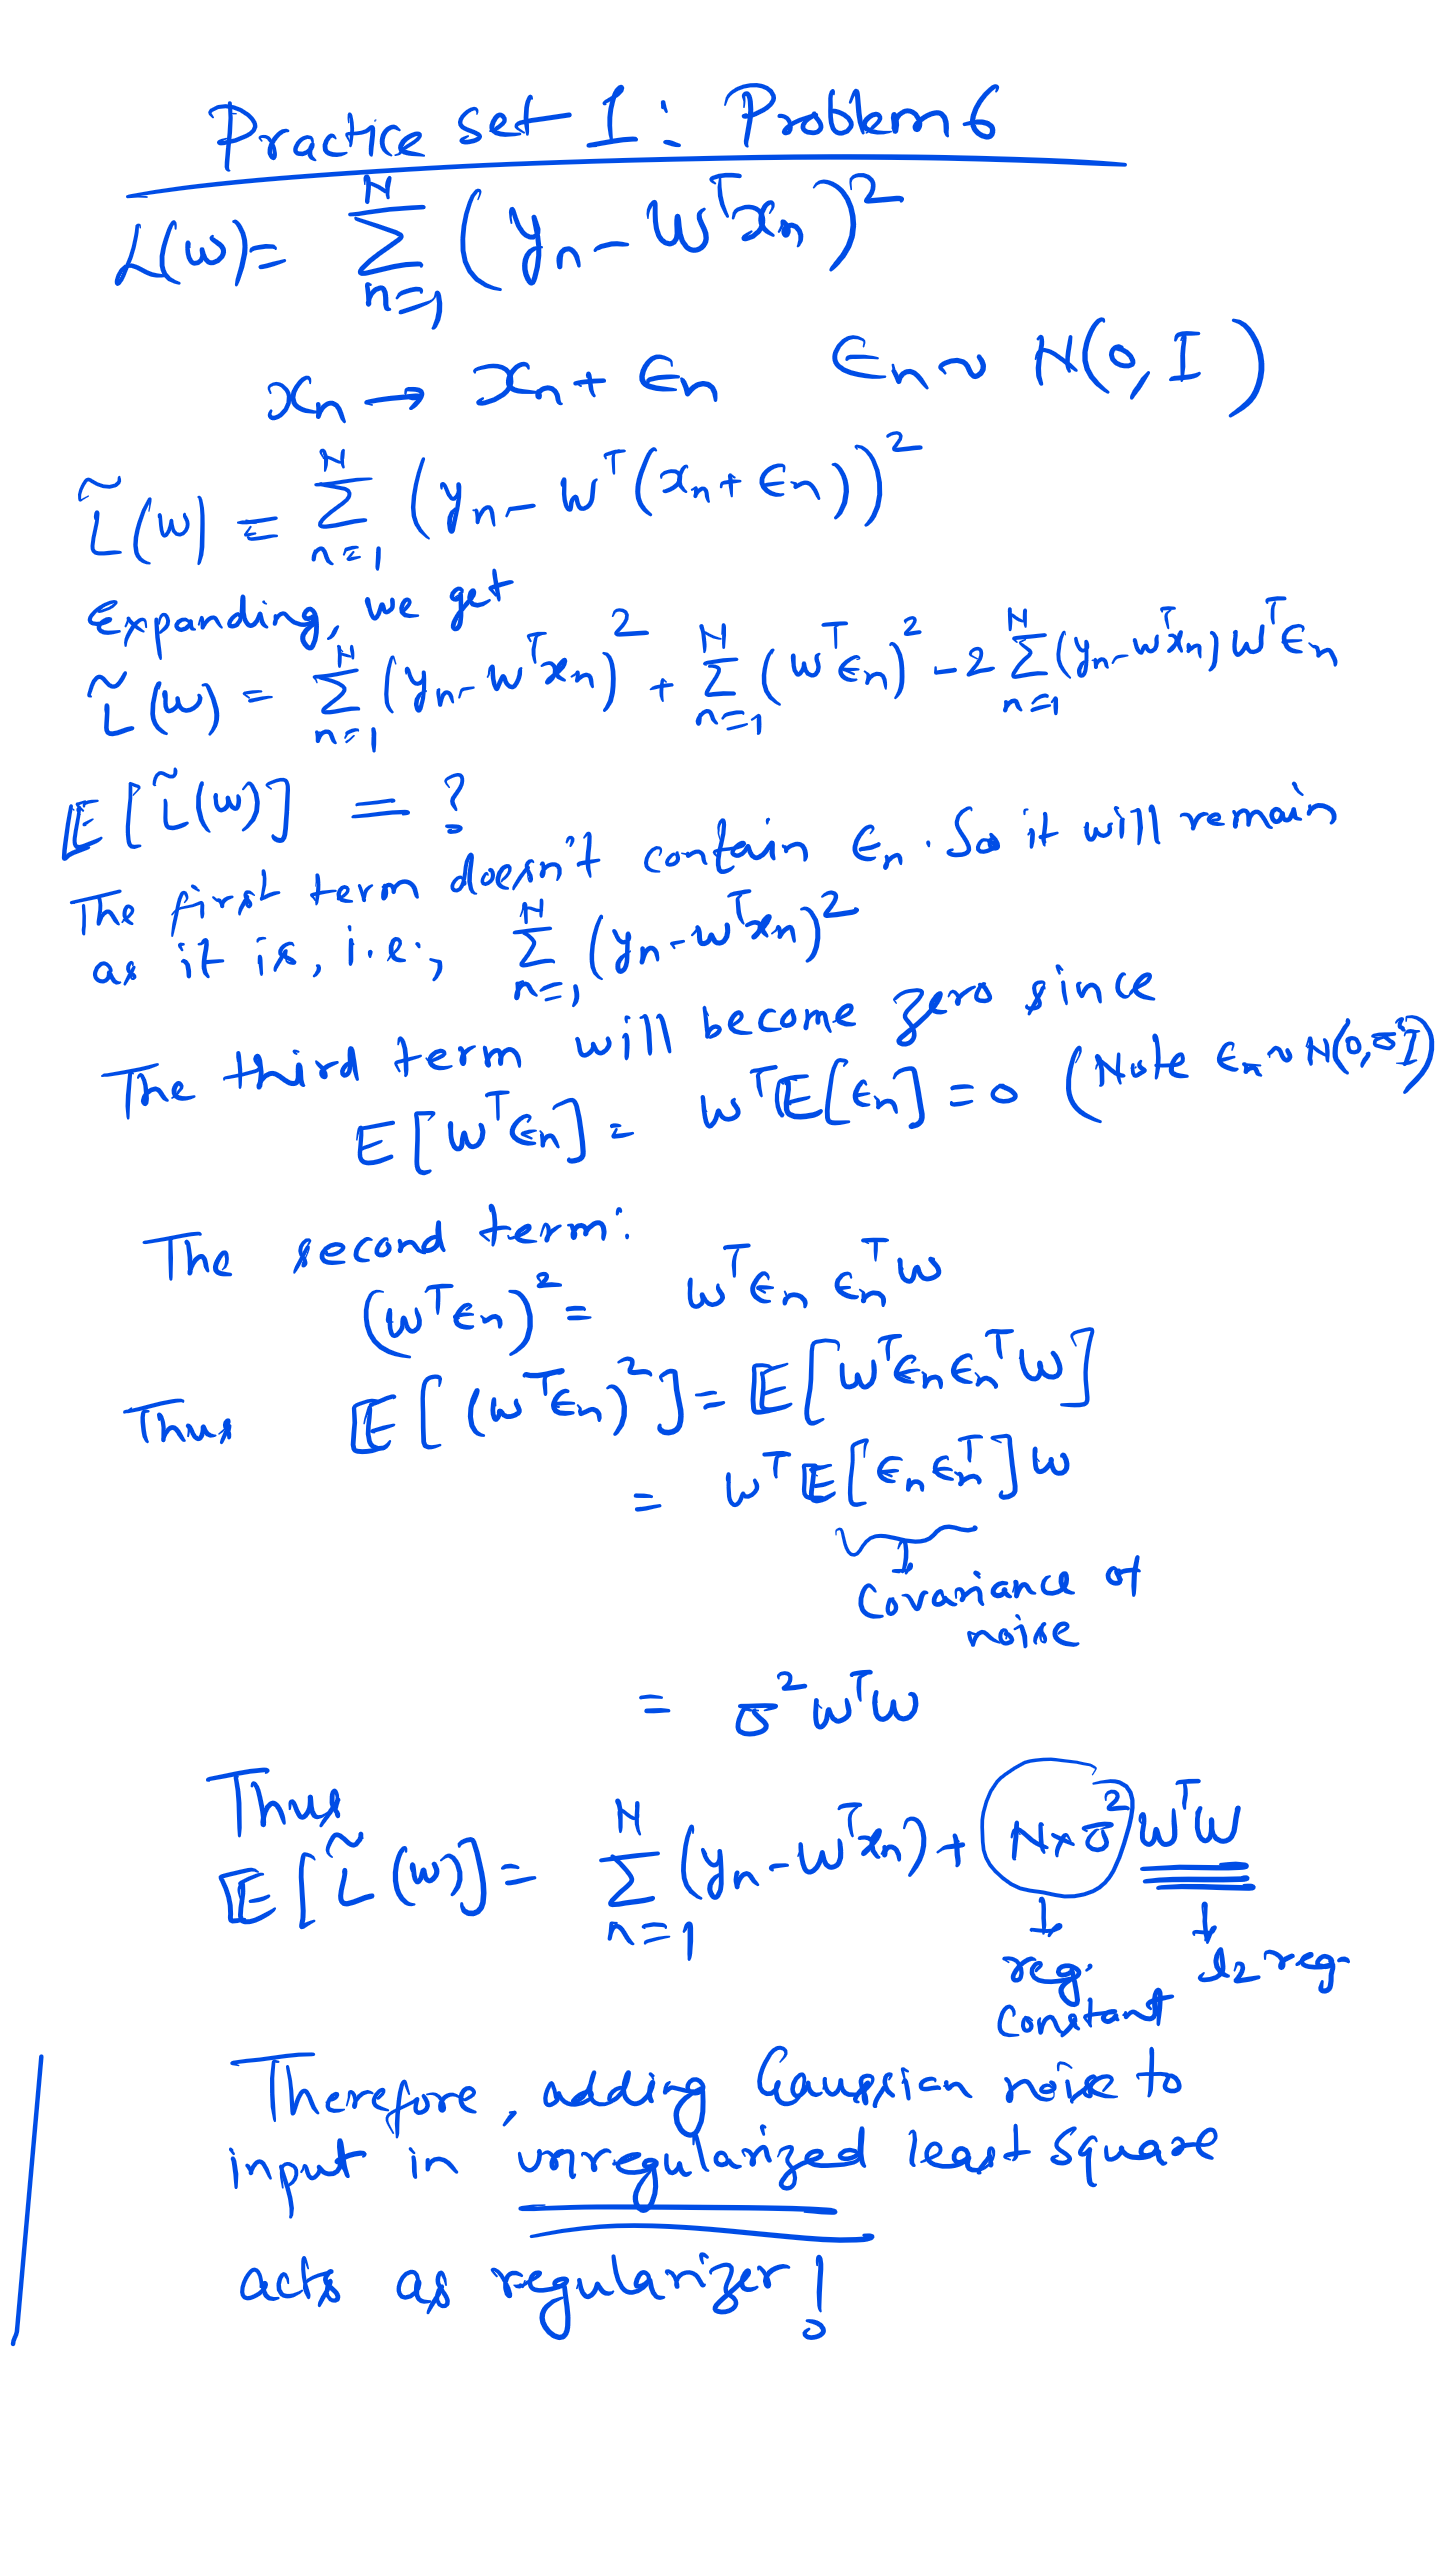 Practice set 1: Problem 6
L(w) = ∑_{n=1}^{N} (y_n - w^T x_n)^2
x_n → x_n + ϵ_n   ϵ_n ~ N(0, I)
L̃(w) = ∑_{n=1}^{N} (y_n - w^T (x_n + ϵ_n))^2
Expanding, we get
L̃(w) = ∑_{n=1}^{N} (y_n - w^T x_n)^2 + ∑_{n=1}^{N} (w^T ϵ_n)^2 - 2 ∑_{n=1}^{N} (y_n - w^T x_n) w^T ϵ_n
𝔼[L̃(w)] = ?
The first term doesn't contain ϵ_n. So it will remain
as it is, i.e., ∑_{n=1}^{N} (y_n - w^T x_n)^2
The third term will become zero since
E[w^T ϵ_n] = w^T 𝔼[ϵ_n] = 0 (Note ϵ_n ~ N(0, σ^2 I))
The second term:
(w^T ϵ_n)^2 = w^T ϵ_n ϵ_n^T w
Thus 𝔼[(w^T ϵ_n)^2] = 𝔼[w^T ϵ_n ϵ_n^T w]
= w^T 𝔼[ϵ_n ϵ_n^T] w
↓
Covariance of
noise
= σ^2 w^T w
Thus
𝔼[L̃(w)] = ∑_{n=1}^{N} (y_n - w^T x_n) + N × σ^2 w^T w
↓ ↓
reg. l2 reg.
constant
Therefore, adding Gaussian noise to
input in unregularized least square
acts as regularizer!